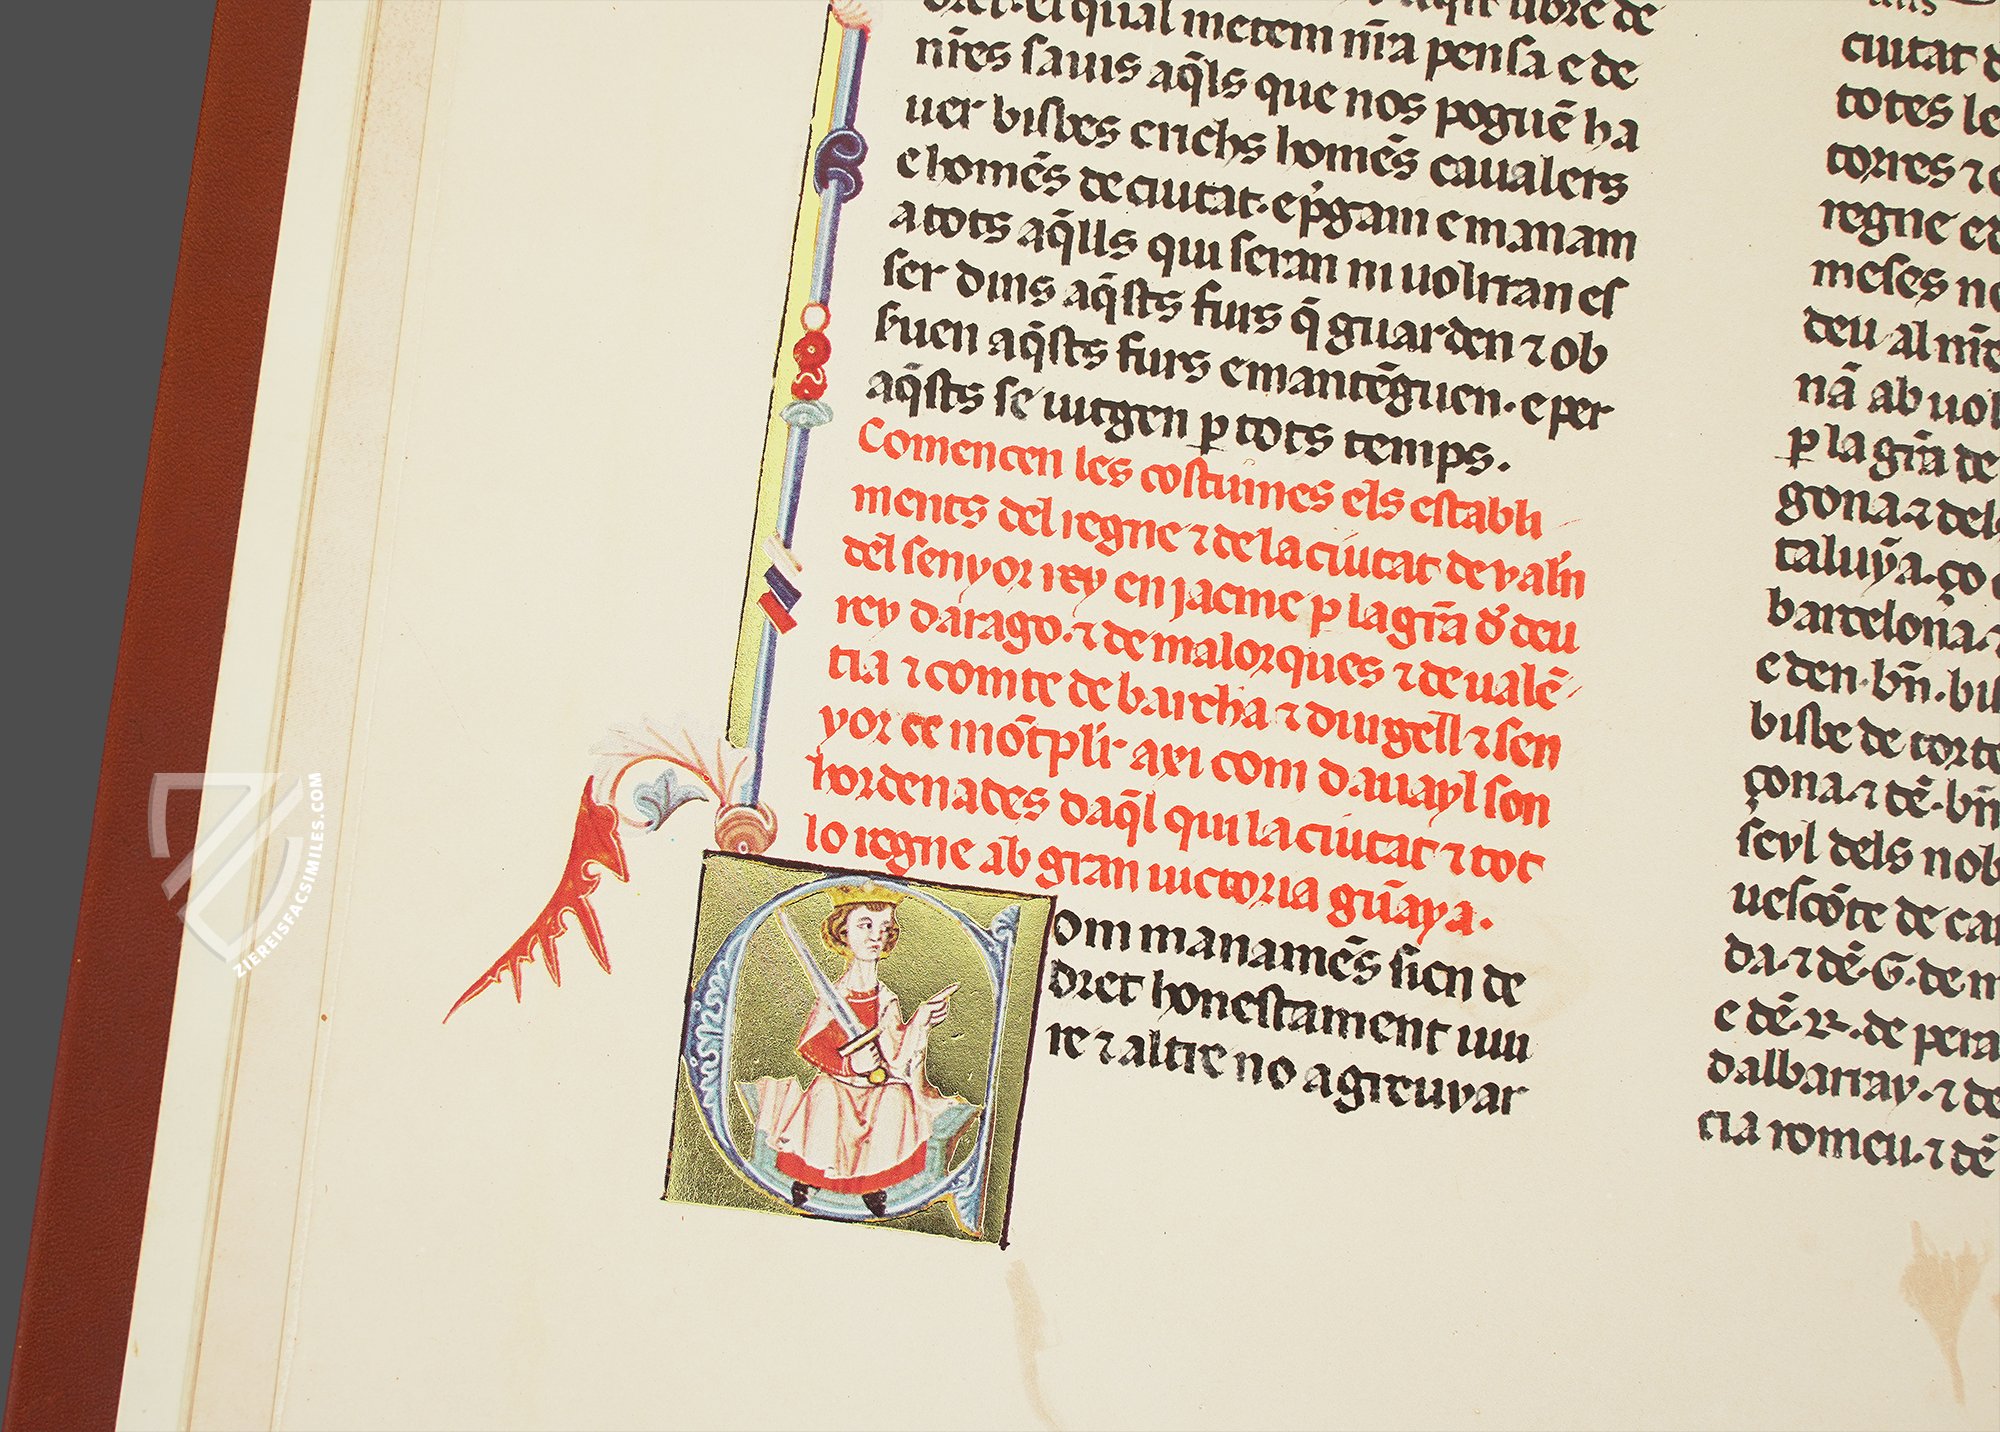 dret. el qual metem nr̃a pensa e de
nr̃es sauis aq̃ls que nos poguẽ ha
uer bisbes e richs homẽs caualers
e homẽs de ciutat. e p̃gam e manam
a tots aq̃lls qui seran ni uolrran es
ser dins aq̃sts furs q̃ guarden ⁊ ob
seruen aq̃sts furs e mantẽguen. e per
aq̃sts se iutgen ꝑ tots temps.
Comencen les costumes els establi
ments del regne ⁊ de la ciutat de valñ
del senyor rey en jacme ꝑ la gr̃a d̃ deu
rey darago. ⁊ de malorques ⁊ de ualẽ
cia ⁊ comte de barcħa ⁊ durgell ⁊ sen
yor de mõtpl̃r axi com dauayl son
hordenades daq̃l qui la ciutat ⁊ tot
lo regne ab gran uictoria gũaya.
Com manamẽs sien de
dret honestament uiu
re ⁊ altre no agreuyar
ciutat d
totes le
torres ⁊ e
regne ed
meses no
deu al nr̃e
nã ab uol
ꝑ la gr̃a de
gona. ⁊ del
taluỹa. ço
barcelona. ⁊
e den. bñ. bis
bisbe de torto
çona. ⁊ dẽ. bñ
seyl dels nob
uescõte de car
da. ⁊ dẽ. G. de m
e dẽ. R. de pera
dalbarray. ⁊ de
cia romeu. ⁊ dẽ
ZIEREISFACSIMILES.COM